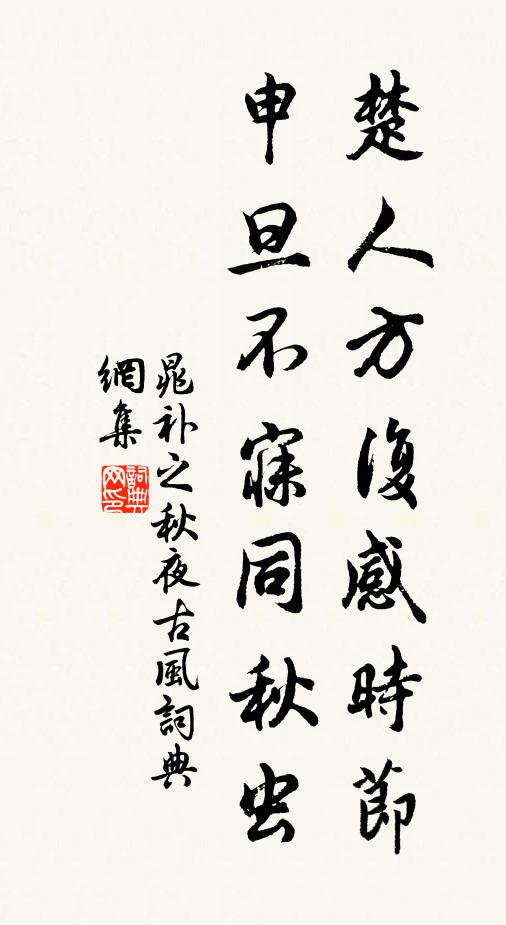 楚人方復感時節
申旦不寐同秋虫
晁补之秋夜古風詞典
網集
詞典网印